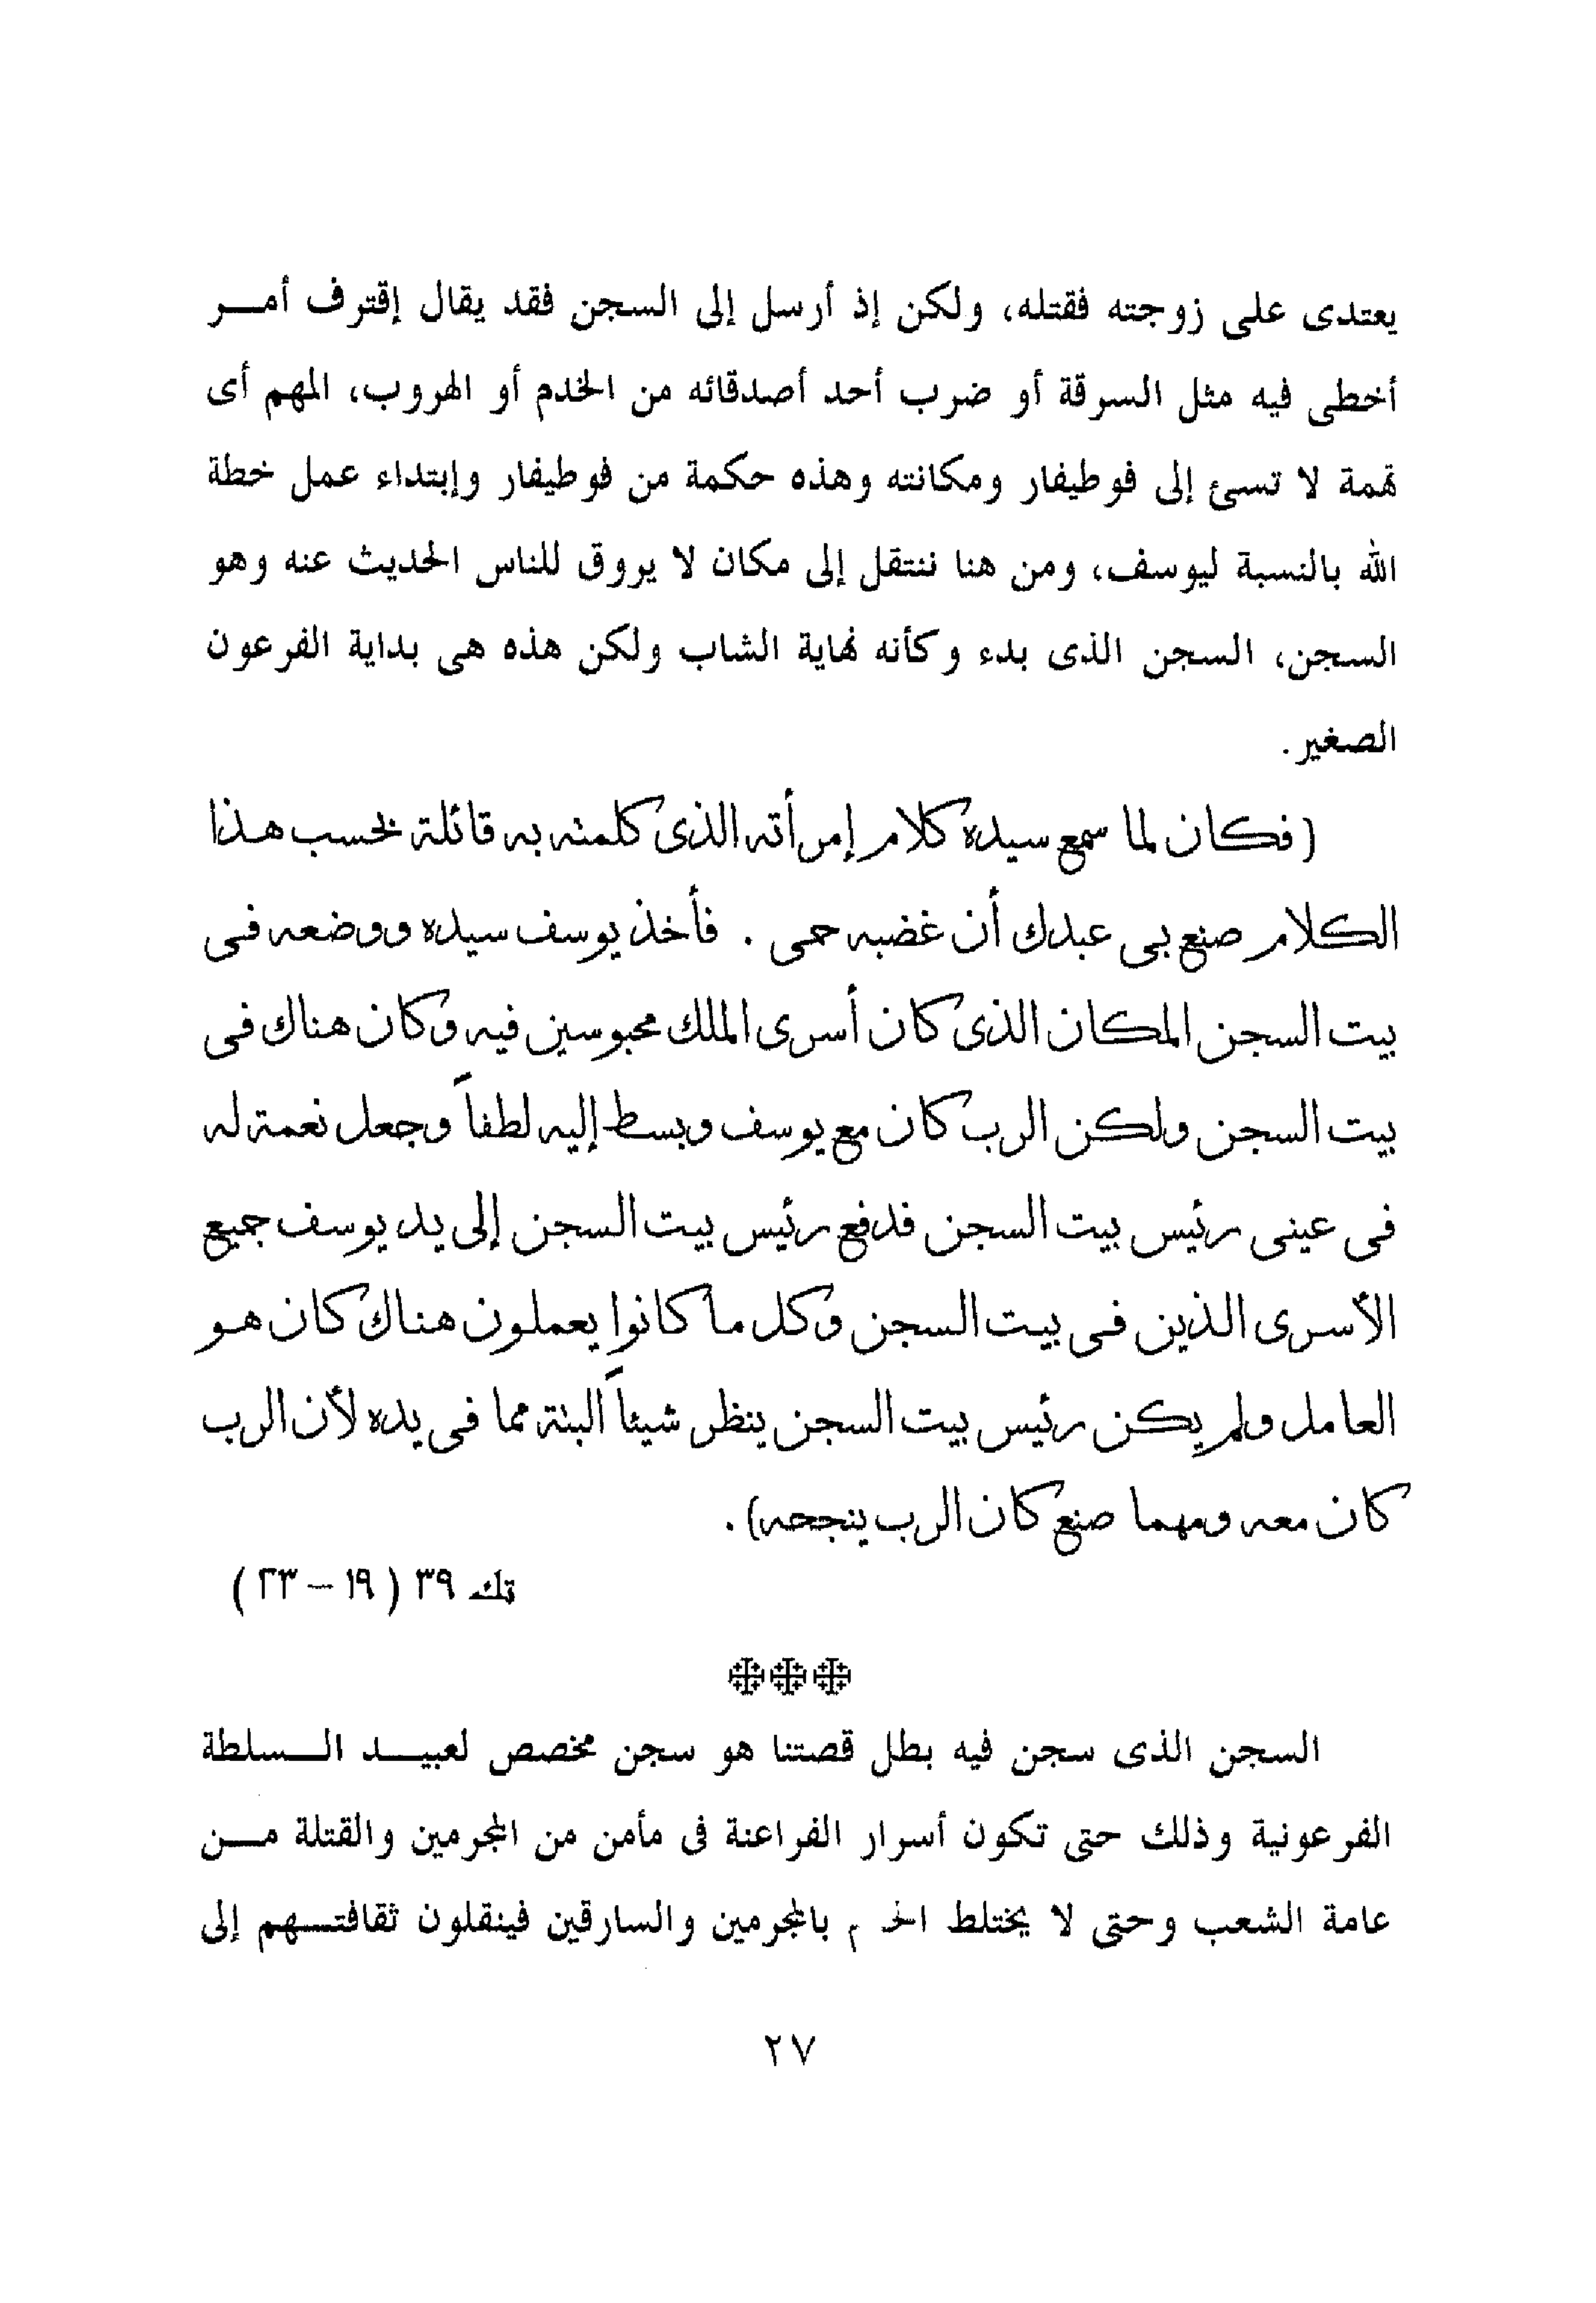 يعتدى على زوجته فقتله، ولكن إذ أرسل إلى السجن فقد يقال إقترف أمـــر
أخطى فيه مثل السرقة أو ضرب أحد أصدقائه من الخدم أو الهروب، المهم أى
تهمة لا تسئ إلى فوطيفار ومكانته وهذه حكمة من فوطيفار وإبتداء عمل خطة
الله بالنسبة ليوسف، ومن هنا ننتقل إلى مكان لا يروق للناس الحديث عنه وهو
السجن، السجن الذى بدء وكأنه نهاية الشاب ولكن هذه هى بداية الفرعون
الصغير.
(فكان لما سمع سيده كلام إمرأته الذى كلمته به قائلة بحسب هذا
الكلام صنع بى عبدك أن غضبه حمى . فأخذ يوسف سيده ووضعه فى
بيت السجن المكان الذى كان أسرى الملك محبوسين فيه وكان هناك فى
بيت السجن ولكن الرب كان مع يوسف وبسط إليه لطفاً وجعل نعمة له
فى عينى رئيس بيت السجن فدفع رئيس بيت السجن إلى يد يوسف جميع
الأسرى الذين فى بيت السجن وكل ما كانوا يعملون هناك كان هو
العامل ولم يكن رئيس بيت السجن ينظر شيئاً البتة مما فى يده لأن الرب
كان معه ومهما صنع كان الرب ينجحه).
تك ٣٩ ( ١٩ – ٢٣ )
السجن الذى سجن فيه بطل قصتنا هو سجن مخصص لعبيـــد الـــسلطة
الفرعونية وذلك حتى تكون أسرار الفراعنة فى مأمن من المجرمين والقتلة مـــن
عامة الشعب وحتى لا يختلط بالمجرمين والسارقين فينقلون ثقافتـــهم إلى
٢٧